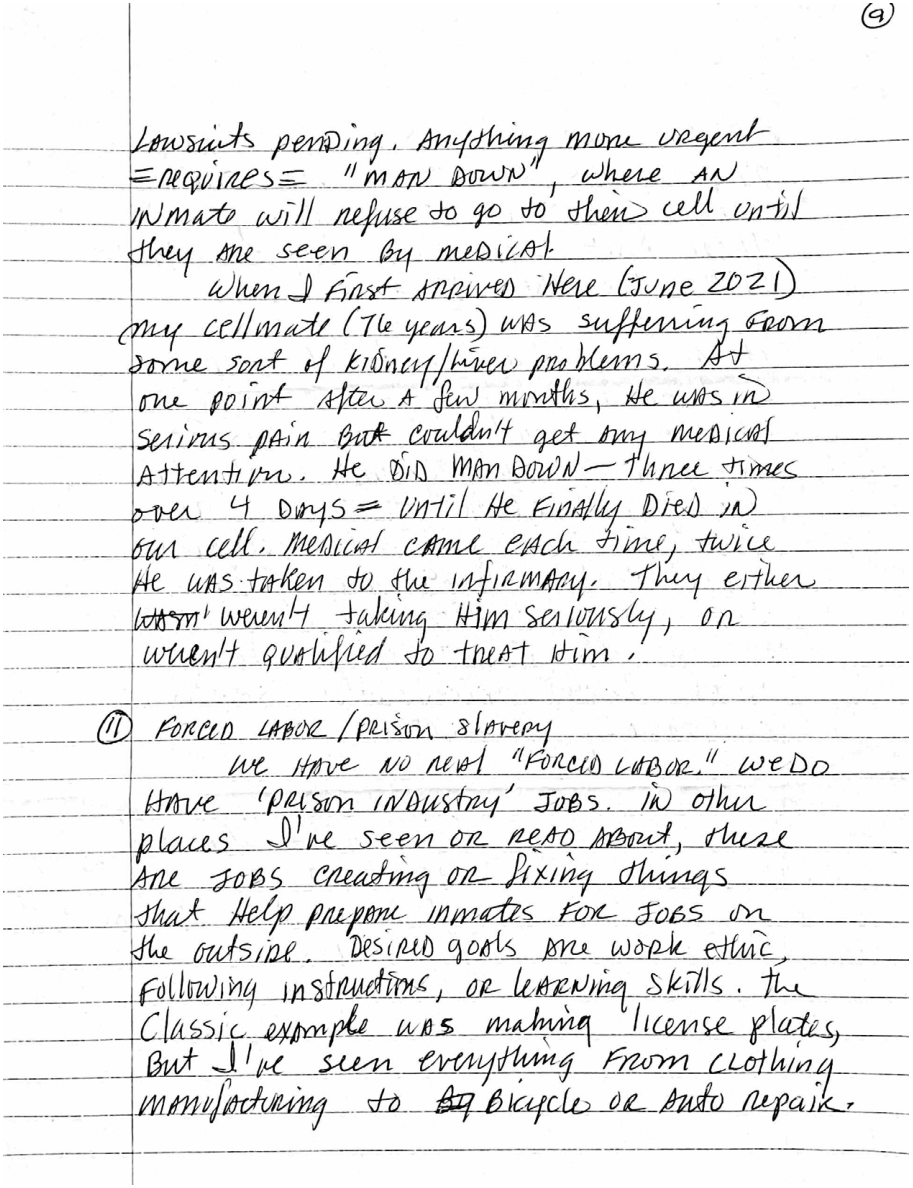 9
Lawsuits pending. Anything more urgent
=requires= "MAN DOWN", where AN
inmate will refuse to go to their cell until
they are seen By medical
When I first arrived Here (June 2021)
my cellmate (76 years) was suffering From
some sort of kidney/Liver problems. At
one point after A few months, He was in
serious pain But couldn't get any medical
Attention. He DID MAN DOWN - three times
over 4 Days = until He Finally Died in
our cell. Medical came each time, twice
He was taken to the infirmary. They either
wasn' weren't taking Him seriously, or
weren't qualified to treat Him.
11 FORCED LABOR / Prison Slavery
We HAVE NO real "FORCED LABOR." We DO
HAVE 'Prison industry' JOBS. in other
places I've seen OR READ ABout, these
Are JOBS creating or fixing things
that Help prepare inmates FOR JOBS on
the outside. Desired goals are work ethic,
Following instructions, or learning skills. The
Classic example was making license plates,
But I've seen everything From clothing
manufacturing to Bicycle or Auto repair.